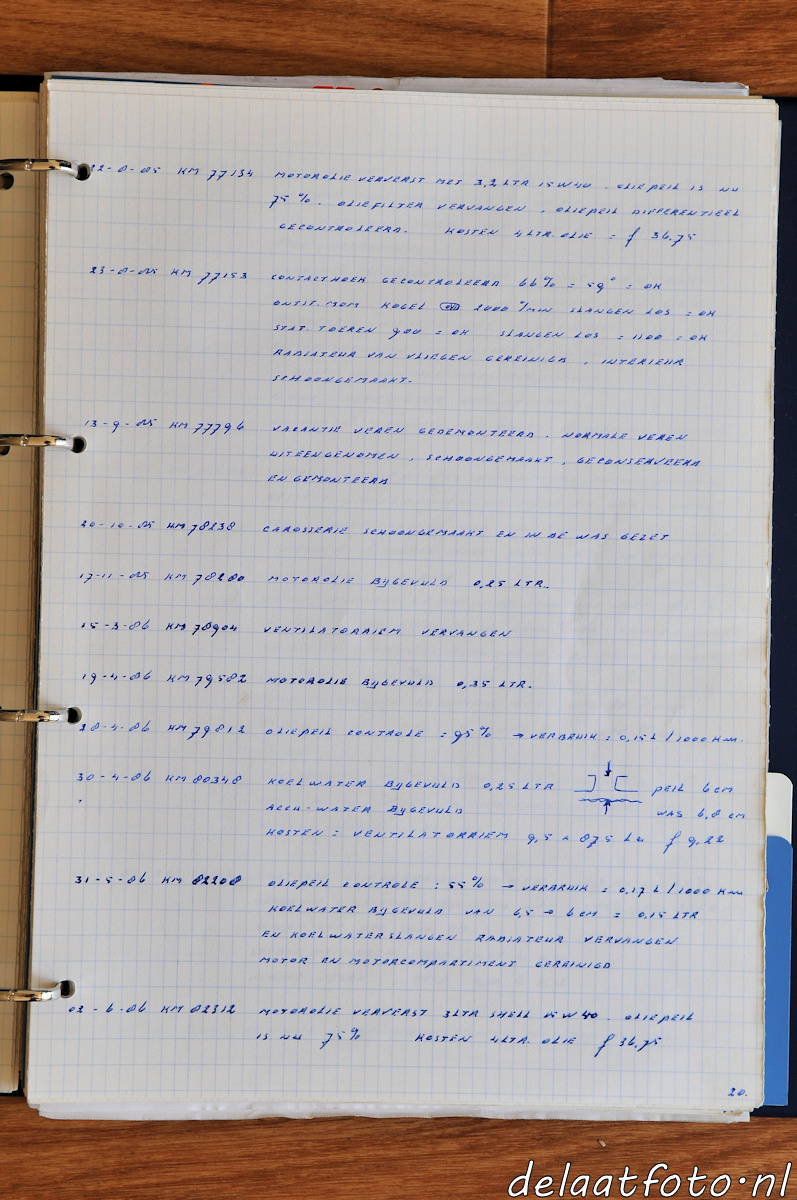 22-8-85 KM 77134 MOTOROLIE VERVERST MET 3,2 LTR 15W40. OLIEPEIL IS NU
75%. OLIEFILTER VERVANGEN. OLIEPEIL DIFFERENTIEEL
GECONTROLEERD. KOSTEN 4LTR. OLIE = f 36.75
23-8-85 KM 77153 CONTACTHOEK GECONTROLEERD 66% = 59° = OK
ONTST. MOM KOGEL 2000 °/MIN SLANGEN LOS = OK
STAT. TOEREN 900 = OK SLANGEN LOS = 1100 = OK
RADIATEUR VAN VLIEGEN GEREINIGD, INTERIEUR
SCHOONGEMAAKT.
13-9-85 KM 77796 VACANTIE VEREN GEDEMONTEERD. NORMALE VEREN
UITEENGENOMEN, SCHOONGEMAAKT, GECONSERVEERD
EN GEMONTEERD
20-10-85 KM 78238 CAROSSERIE SCHOONGEMAAKT EN IN DE WAS GEZET
17-11-85 KM 78280 MOTOROLIE BIJGEVULD 0,25 LTR.
15-3-86 KM 78904 VENTILATORRIEM VERVANGEN
19-4-86 KM 79582 MOTOROLIE BIJGEVULD 0,35 LTR.
28-4-86 KM 79812 OLIEPEIL CONTROLE = 95% → VERBRUIK = 0,15 L / 1000 KM.
30-4-86 KM 80348 KOELWATER BIJGEVULD 0,25 LTR PEIL 6 CM
ACCU-WATER BIJGEVULD WAS 6,8 CM
KOSTEN: VENTILATORRIEM 9,5 x 875 La f 9.22
31-5-86 KM 82208 OLIEPEIL CONTROLE : 55% → VERBRUIK = 0,17 L / 1000 KM
KOELWATER BIJGEVULD VAN 6,5 → 6 CM = 0,15 LTR
EN KOELWATERSLANGEN RADIATEUR VERVANGEN
MOTOR EN MOTORCOMPARTIMENT GEREINIGD
02-6-86 KM 82312 MOTOROLIE VERVERST 3LTR SHELL 15W40. OLIEPEIL
IS NU 75% KOSTEN 4LTR. OLIE f 36.75
20.
delaatfoto.nl